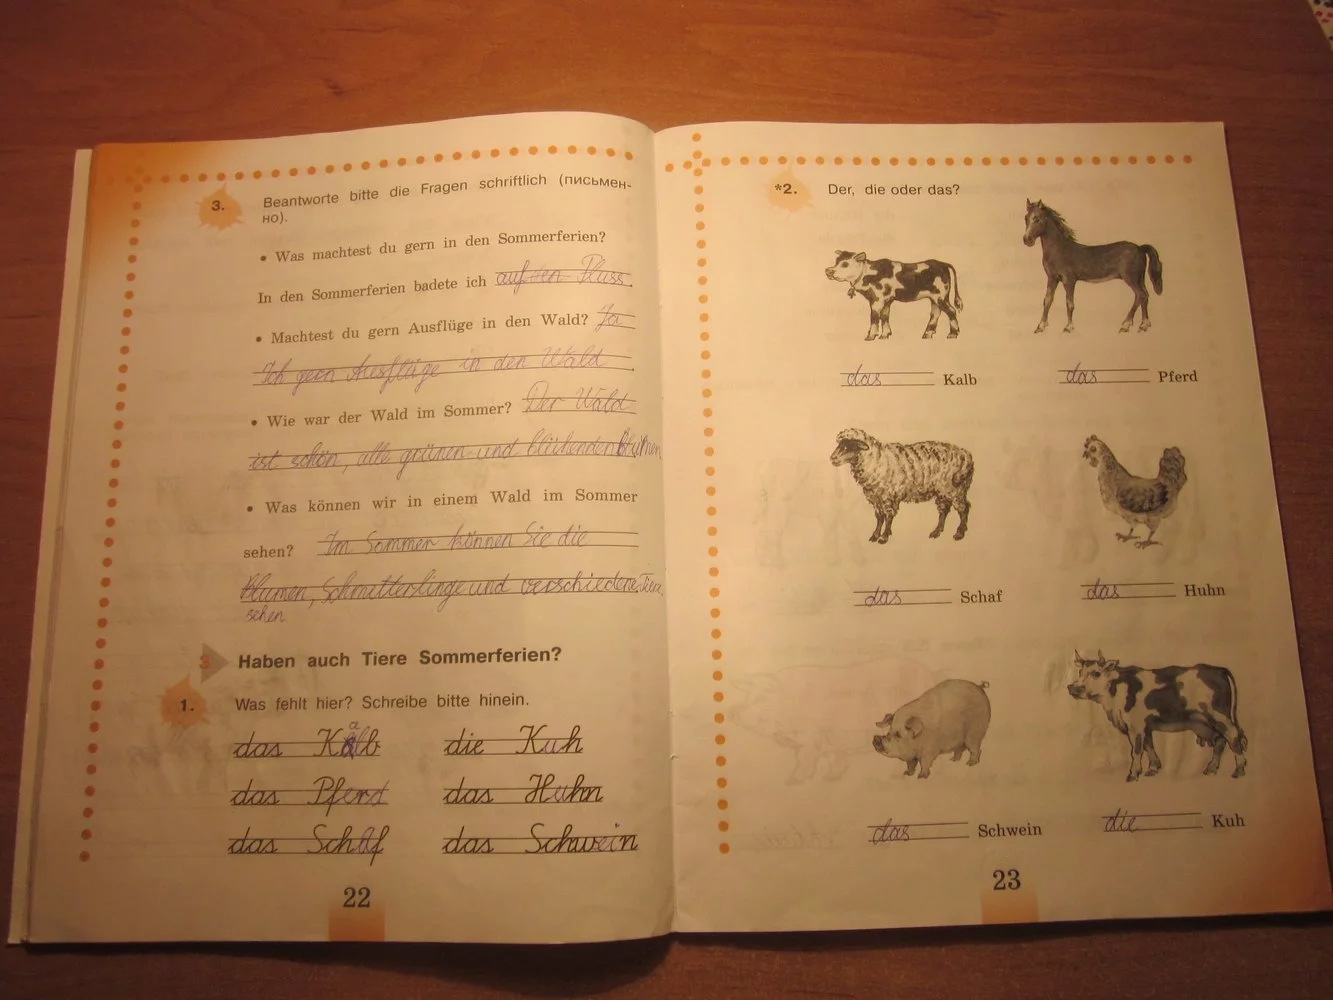 3.
Beantworte bitte die Fragen schriftlich (письмен-
но).
• Was machtest du gern in den Sommerferien?
In den Sommerferien badete ich auf den Fluss.
• Machtest du gern Ausflüge in den Wald? Ja
Ich gern Ausflüge in den Wald.
• Wie war der Wald im Sommer? Der Wald
ist schön, alle grünen und blühenden blumen
• Was können wir in einem Wald im Sommer
sehen? Im Sommer können Sie die
Blumen, Schmitterslinge und verschiedene Tiere
sehen
3 Haben auch Tiere Sommerferien?
1.
Was fehlt hier? Schreibe bitte hinein.
das Kalb die Kuh
das Pferd das Huhn
das Schaf das Schwein
22
*2. Der, die oder das?
das Kalb das Pferd
das Schaf das Huhn
das Schwein die Kuh
23